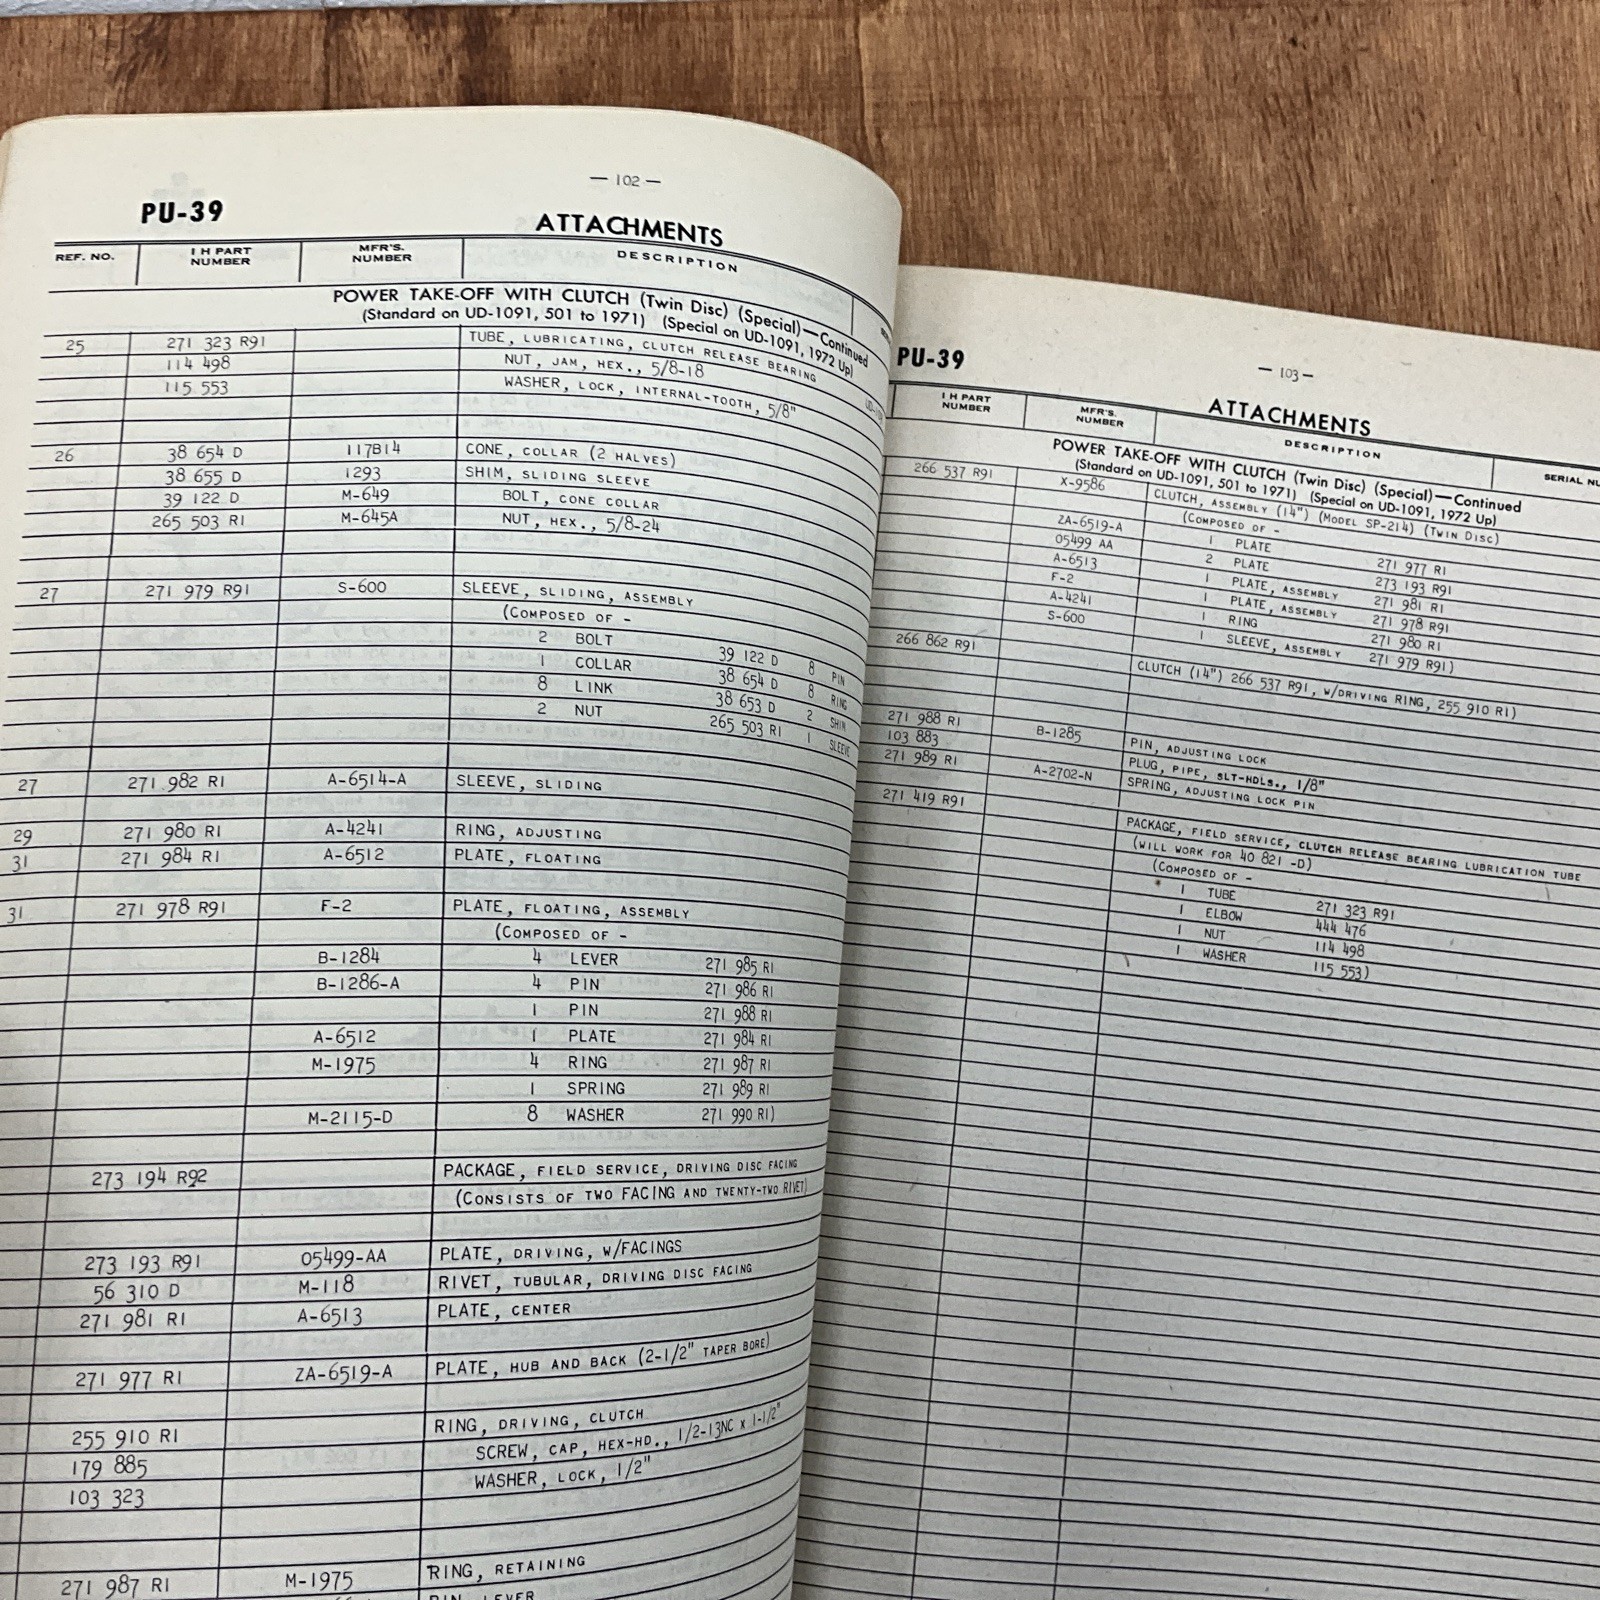 — 102 —
PU-39
ATTACHMENTS
REF. NO.
I H PART NUMBER
MFR'S. NUMBER
DESCRIPTION
POWER TAKE-OFF WITH CLUTCH (Twin Disc) (Special)—Continued
(Standard on UD-1091, 501 to 1971) (Special on UD-1091, 1972 Up)
25 271 323 R91 TUBE, LUBRICATING, CLUTCH RELEASE BEARING
114 498 NUT, JAM, HEX., 5/8-18
115 553 WASHER, LOCK, INTERNAL-TOOTH, 5/8"
26 38 654 D 117B14 CONE, COLLAR (2 HALVES)
38 655 D 1293 SHIM, SLIDING SLEEVE
39 122 D M-649 BOLT, CONE COLLAR
265 503 R1 M-645A NUT, HEX., 5/8-24
27 271 979 R91 S-600 SLEEVE, SLIDING, ASSEMBLY
(COMPOSED OF -
2 BOLT 39 122 D 8 PIN
1 COLLAR 38 654 D 8 RING
8 LINK 38 653 D 2 SHIM
2 NUT 265 503 R1 1 SLEEVE
27 271 982 R1 A-6514-A SLEEVE, SLIDING
29 271 980 R1 A-4241 RING, ADJUSTING
31 271 984 R1 A-6512 PLATE, FLOATING
31 271 978 R91 F-2 PLATE, FLOATING, ASSEMBLY
(COMPOSED OF -
B-1284 4 LEVER 271 985 R1
B-1286-A 4 PIN 271 986 R1
1 PIN 271 988 R1
A-6512 1 PLATE 271 984 R1
M-1975 4 RING 271 987 R1
1 SPRING 271 989 R1
M-2115-D 8 WASHER 271 990 R1)
273 194 R92 PACKAGE, FIELD SERVICE, DRIVING DISC FACING
(CONSISTS OF TWO FACING AND TWENTY-TWO RIVET)
273 193 R91 05499-AA PLATE, DRIVING, W/FACINGS
56 310 D M-118 RIVET, TUBULAR, DRIVING DISC FACING
271 981 R1 A-6513 PLATE, CENTER
271 977 R1 ZA-6519-A PLATE, HUB AND BACK (2-1/2" TAPER BORE)
255 910 R1 RING, DRIVING, CLUTCH
179 885 SCREW, CAP, HEX-HD., 1/2-13NC x 1-1/2"
103 323 WASHER, LOCK, 1/2"
271 987 R1 M-1975 RING, RETAINING
PIN, LEVER
PU-39
— 103 —
ATTACHMENTS
I H PART NUMBER
MFR'S. NUMBER
DESCRIPTION
SERIAL
POWER TAKE-OFF WITH CLUTCH (Twin Disc) (Special)—Continued
(Standard on UD-1091, 501 to 1971) (Special on UD-1091, 1972 Up)
266 537 R91 X-9586 CLUTCH, ASSEMBLY (14") (MODEL SP-214) (TWIN DISC)
(COMPOSED OF -
ZA-6519-A 1 PLATE 271 977 R1
05499 AA 2 PLATE 273 193 R91
A-6513 1 PLATE, ASSEMBLY 271 981 R1
F-2 1 PLATE, ASSEMBLY 271 978 R91
A-4241 1 RING 271 980 R1
S-600 1 SLEEVE, ASSEMBLY 271 979 R91)
266 862 R91 CLUTCH (14") 266 537 R91, W/DRIVING RING, 255 910 R1)
271 988 R1 B-1285 PIN, ADJUSTING LOCK
103 883 PLUG, PIPE, SLT-HDLS., 1/8"
271 989 R1 A-2702-N SPRING, ADJUSTING LOCK PIN
271 419 R91 PACKAGE, FIELD SERVICE, CLUTCH RELEASE BEARING LUBRICATION TUBE
(WILL WORK FOR 40 821 -D)
(COMPOSED OF -
1 TUBE 271 323 R91
1 ELBOW 444 476
1 NUT 114 498
1 WASHER 115 553)